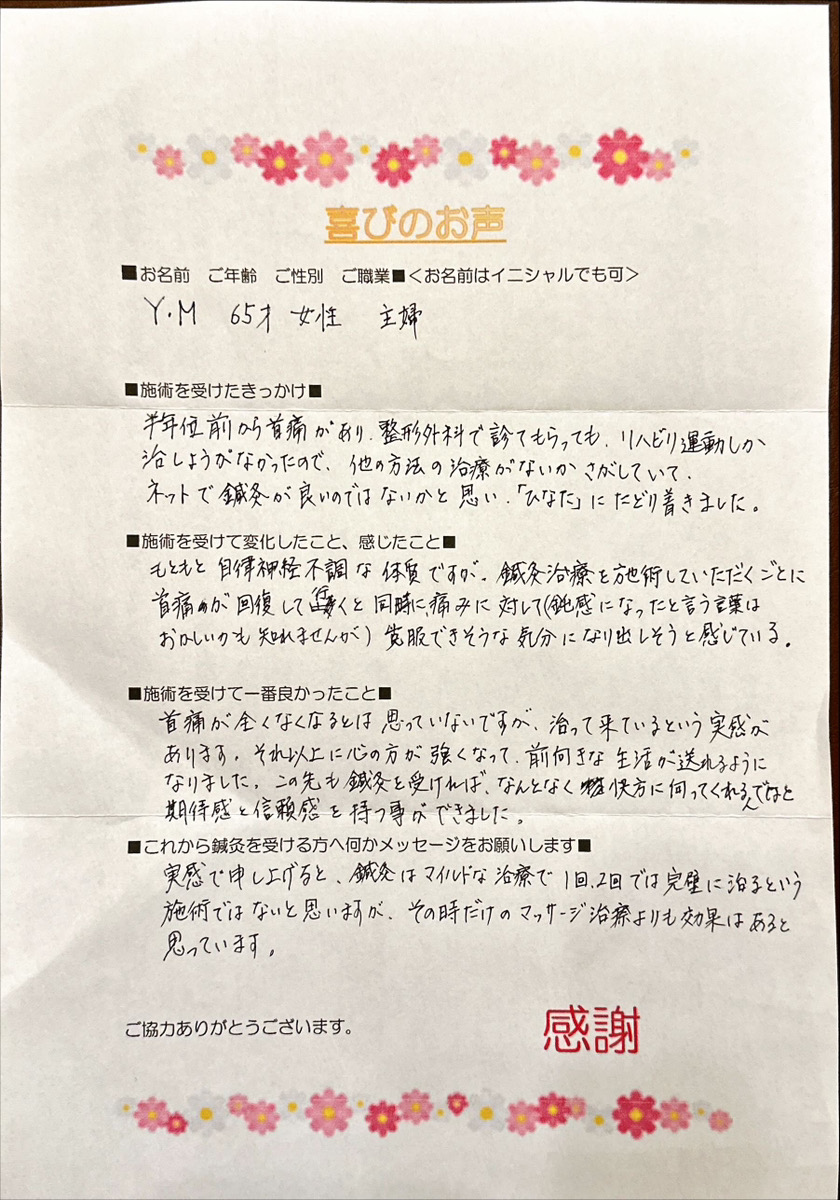 喜びのお声
■お名前 ご年齢 ご性別 ご職業■<お名前はイニシャルでも可>
Y・M 65才 女性 主婦
■施術を受けたきっかけ■
半年位前から首痛があり、整形外科で診てもらっても、リハビリ運動しか
治しようがなかったので、他の方法の治療がないかさがしていて、
ネットで鍼灸が良いのではないかと思い、「ひなた」にたどり着きました。
■施術を受けて変化したこと、感じたこと■
もともと自律神経不調な体質ですが、鍼灸治療を施術していただくごとに
首痛が回復して行くと同時に痛みに対して(鈍感になったと言う言葉は
おかしいかも知れませんが)克服できそうな気分になり出しそうと感じている。
■施術を受けて一番良かったこと■
首痛が全くなくなるとは思っていないですが、治って来ているという実感が
あります。それ以上に心の方が強くなって、前向きな生活が送れるように
なりました。この先も鍼灸を受ければ、なんとなく快方に向ってくれるんではと
期待感と信頼感を持つ事ができました。
■これから鍼灸を受ける方へ何かメッセージをお願いします■
実感で申し上げると、鍼灸はマイルドな治療で1回、2回では完璧に治るという
施術ではないと思いますが、その時だけのマッサージ治療よりも効果はあると
思っています。
ご協力ありがとうございます。
感謝